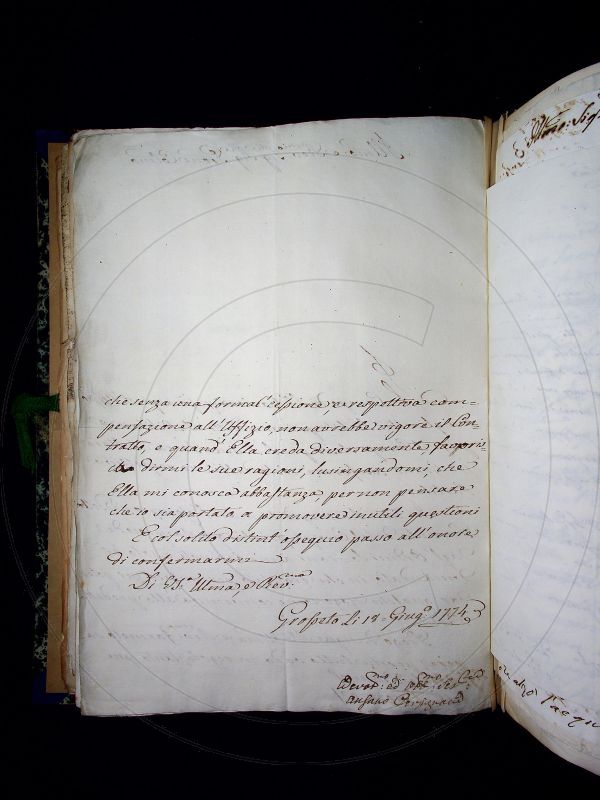 che senza una formal cessione, e respettiva com-
pensazione all' Uffizio, non avrebbe vigore il Con-
tratto, e quand' Ella creda diversamente favoris-
ca dirmi le sue ragioni, lusingandomi, che
Ella mi conosca abbastanza, per non pensare
che io sia portato a promovere inutili questioni
E col solito distint' ossequio passo all' onore
di confermarmi
Di VS. Illma e Rev.ma
Grosseto Li 18 Giug.o 1774
Devot.mo ed
Ansano